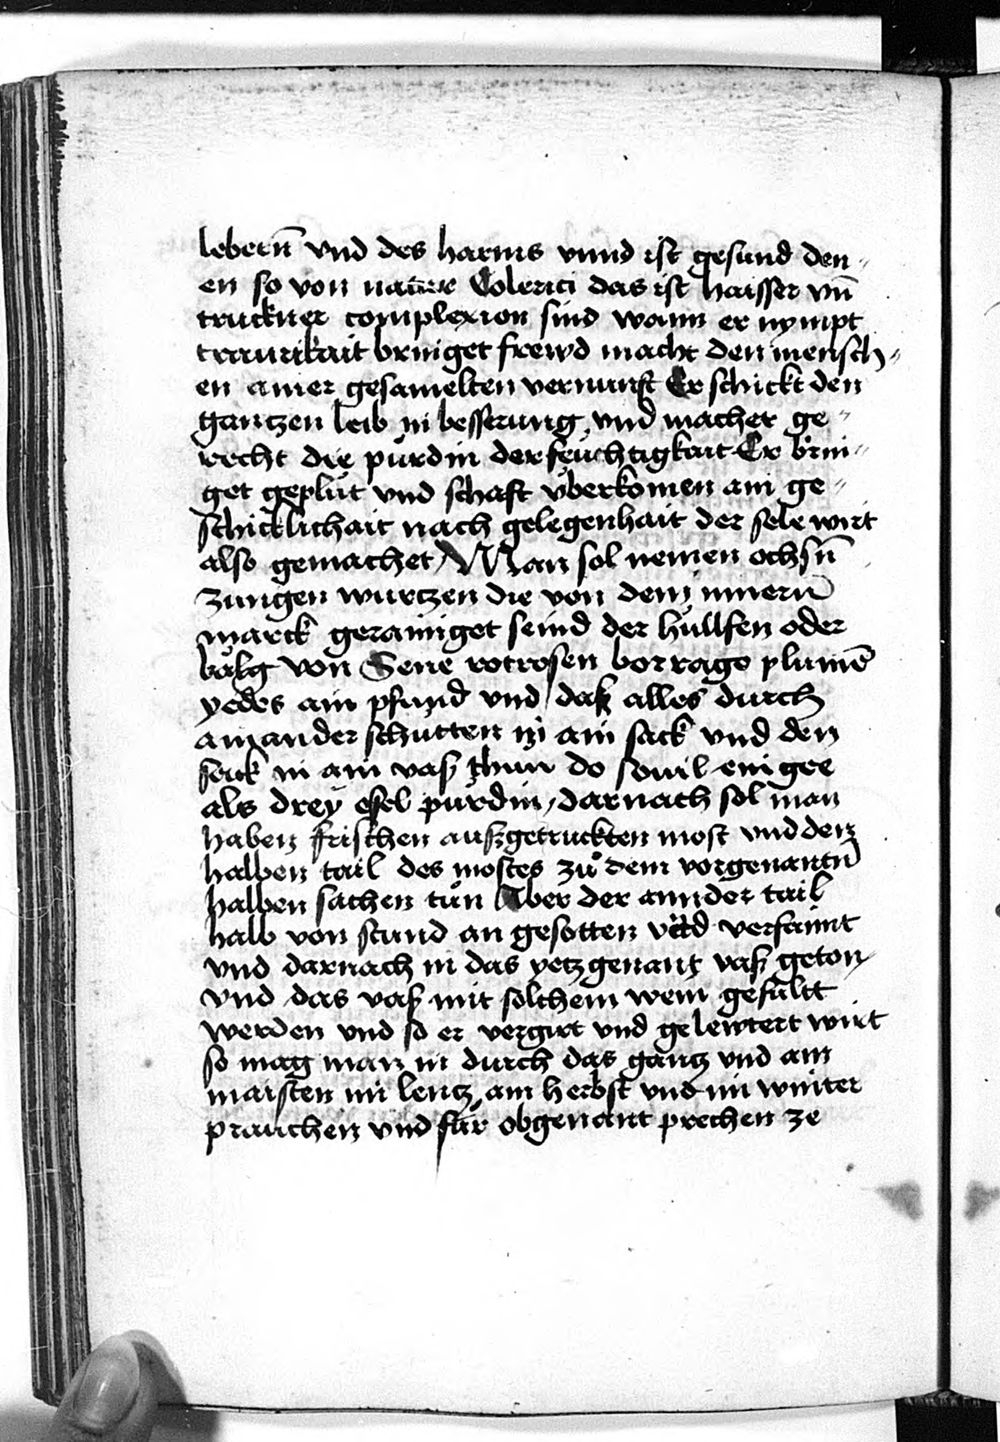 lebern̄ vnd des harns vnnd ist gesund den„
en so von natur Colerici das ist haisser vn̄
truckner complexion sind wann er nympt
traurikait bringet frewd macht den mensch„
en ainer gesamelten vernunft Er schickt den
gantzen leib in besserung vnd machet ge„
recht die purdin der feuchtigkait Er brin„
get geplüt vnd schaft vberkomen ain ge„
schicklichait nach gelegenhait der sele wirt
also gemachet Man sol nemen ochsn̄
zungen wurtzen die von dem innern̄
marck gerainiget seind der hullfen oder
bälg von Sene rotrosen borrago plumē
yedes ain pfund vnd daß alles durch
ainander schutten in ain sack vnd den
sack in ain vaß thun do souil ein gee
als drey esel purdin, darnach sol man
haben frischen außgetruckten most vnd den
halben tail des mostes zů dem vorgenantn̄
halben sachen tůn Aber der annder tail
halb von stund an gesotten vnd verfaimt
vnd darnach in das yetzgenant vaß geton
vnd das vaß mit solchem wein gefültt
werden vnd so er vergirt vnd gelewtert wirt
so mag man in durch das gantz vnd am
maisten im lentz am herbst vnd im winter
prauchen vnd für obgenant prechen ze